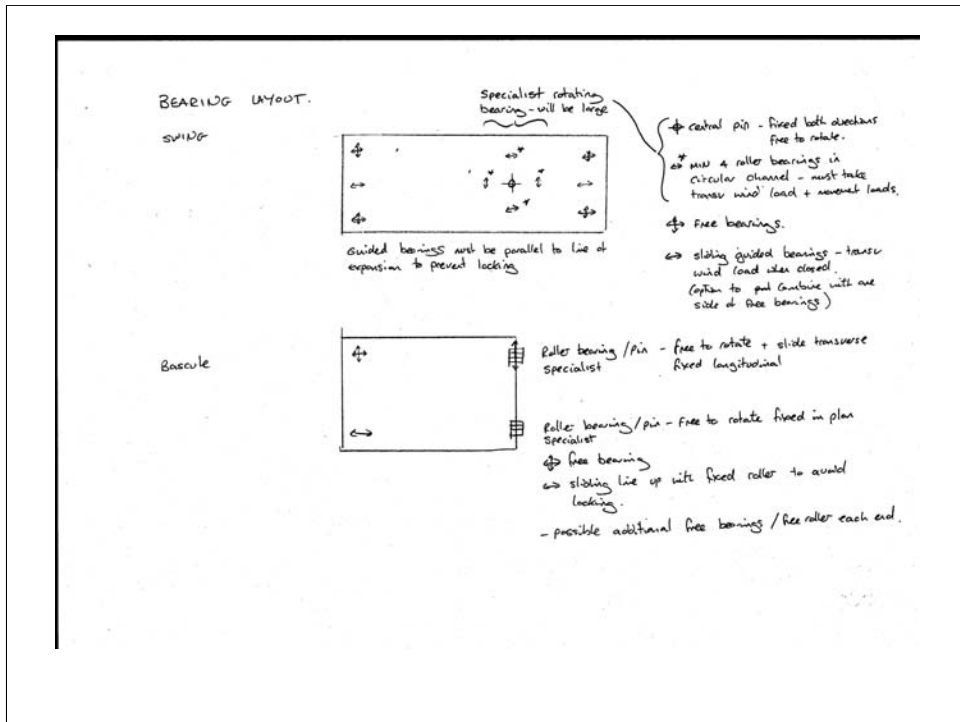 BEARING LAYOUT.
SWING
Specialist rotating
bearing - will be large
central pin - fixed both directions
free to rotate.
* MIN 4 roller bearings in
circular channel - must take
transv wind load + movemet loads.
Free bearings.
sliding guided bearings - transv
wind load when closed.
(option to put combine with one
side of free bearings)
Guided bearings must be parallel to line of
expansion to prevent locking
Bascule
Roller bearing/pin - free to rotate + slide transverse
specialist fixed longitudinal
Roller bearing/pin - free to rotate fixed in plan
specialist
free bearing
sliding line up with fixed roller to avoid
locking.
- possible additional free bearings / free roller each end.